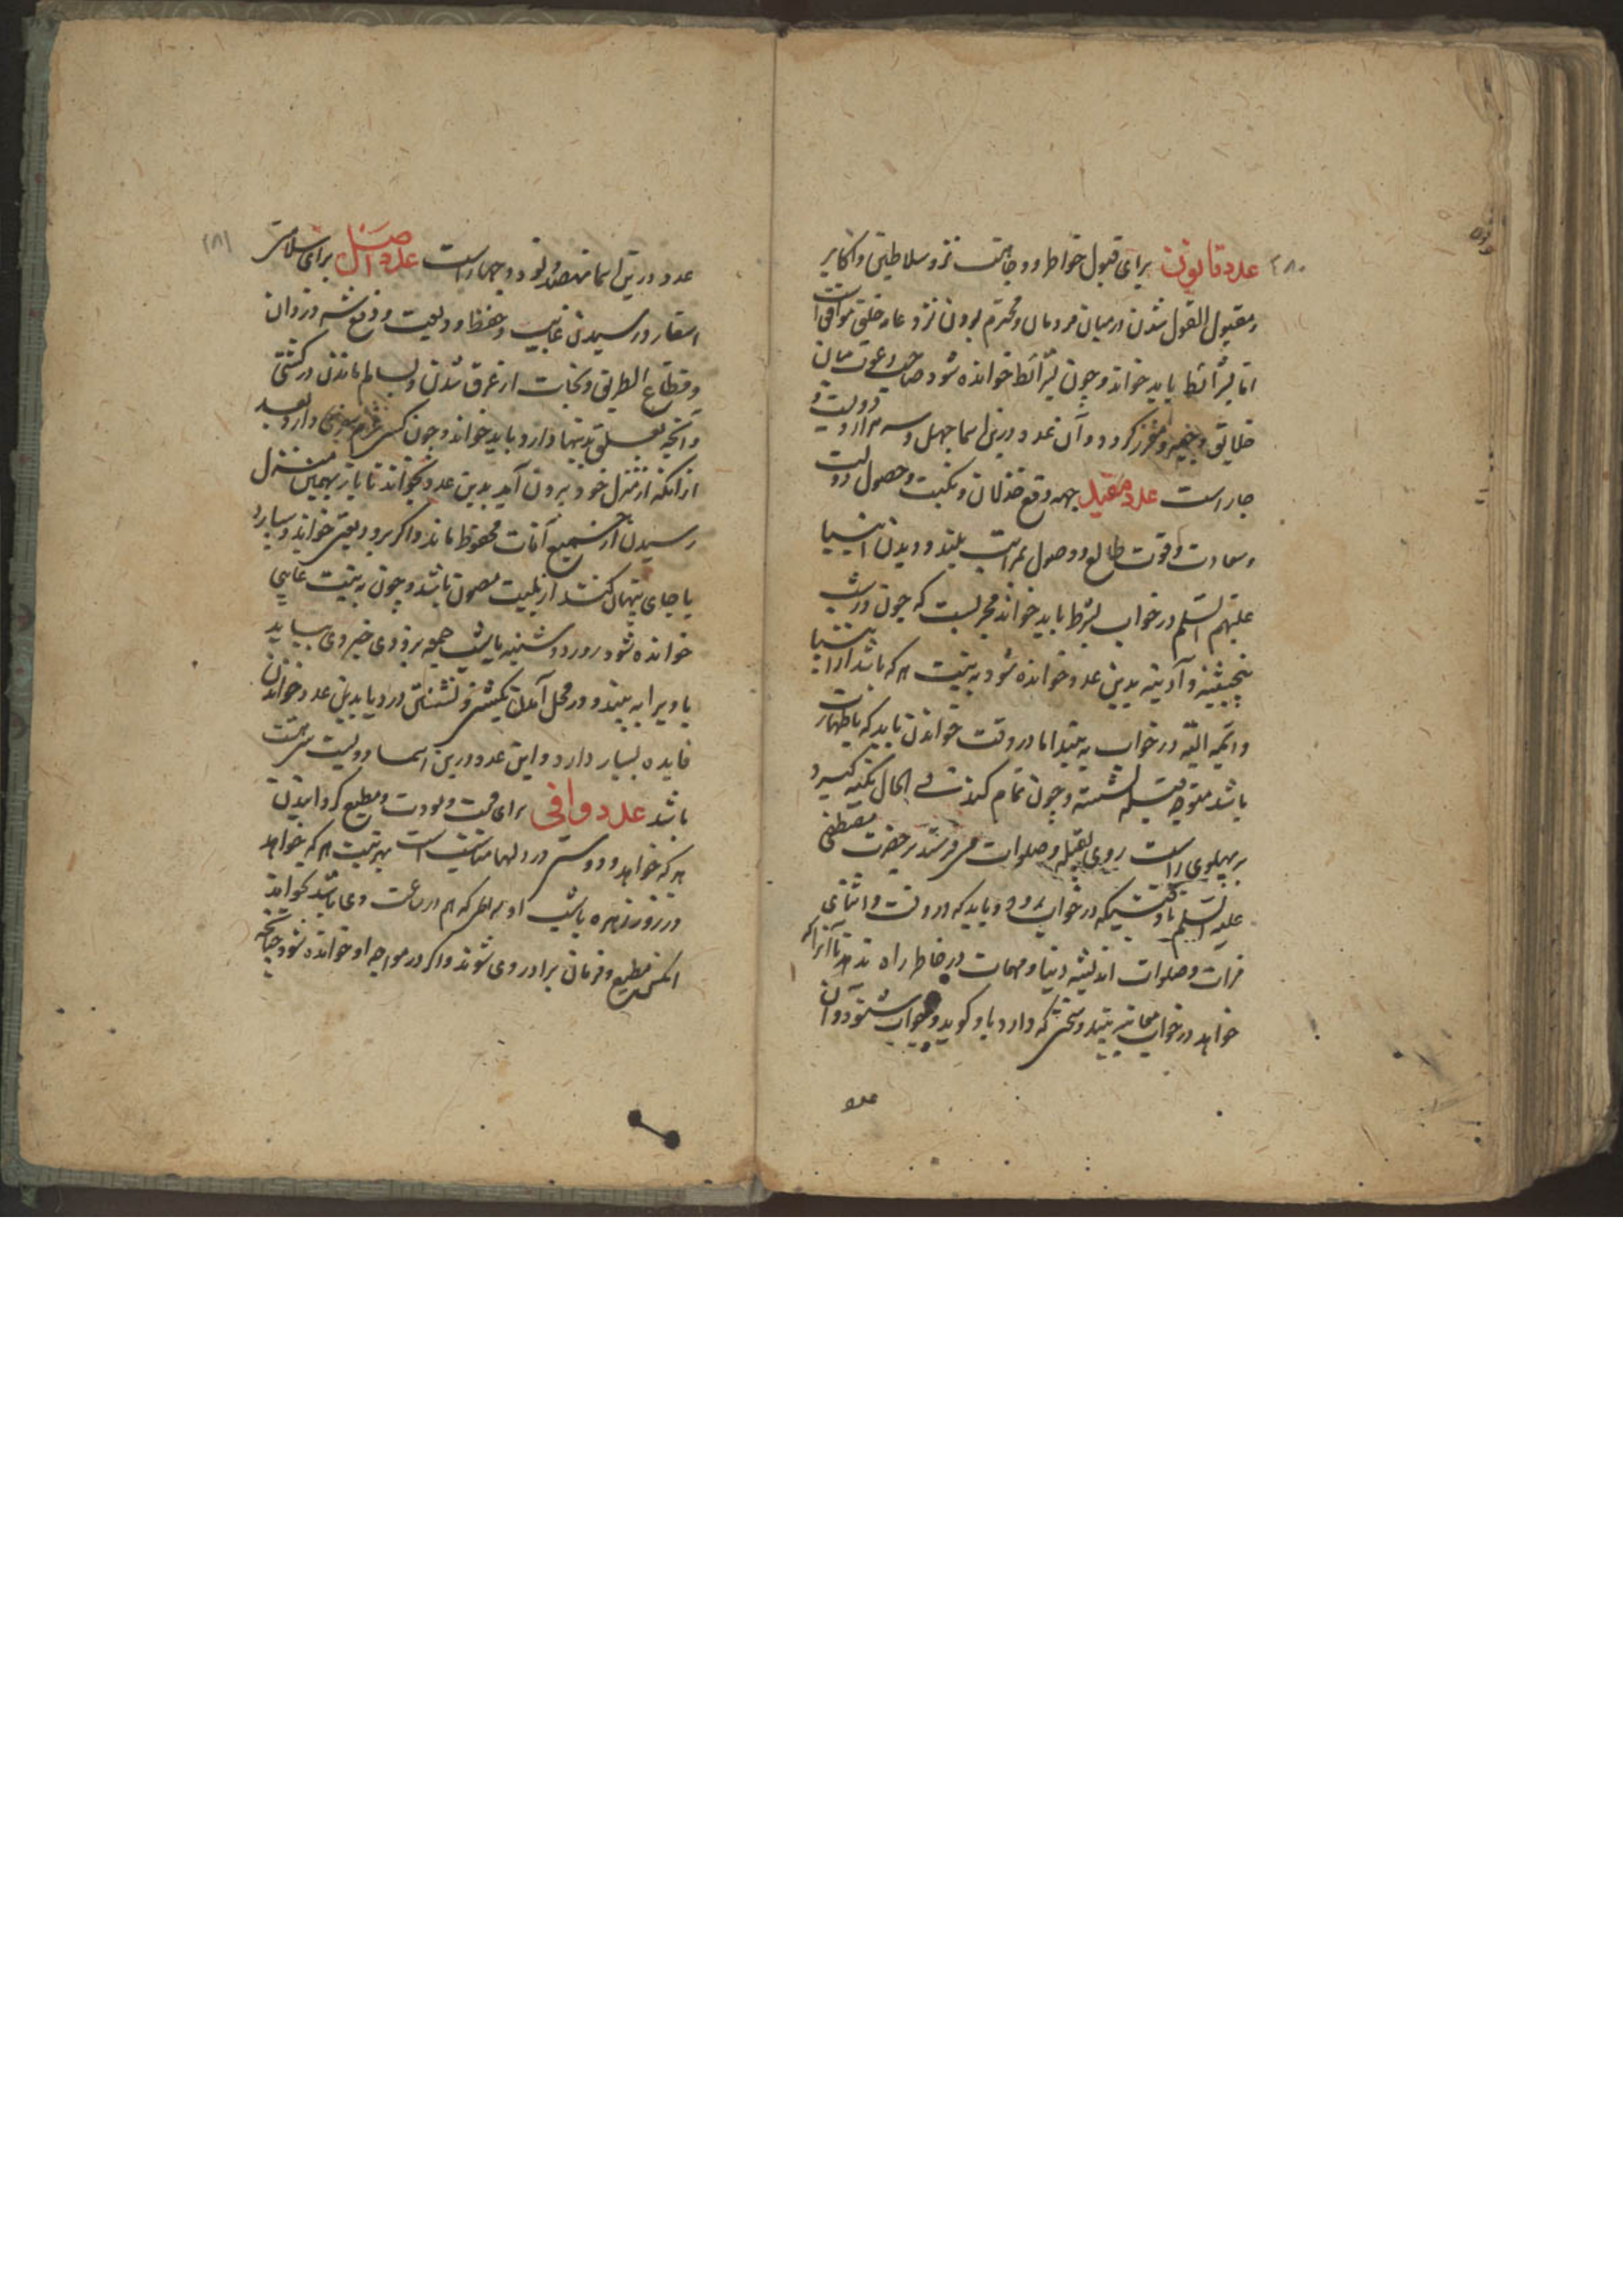 ۲۸۰
عدد قانون برای قبول خواطر و وجاهت نزد سلاطین و اکابر
و مقبول القول شدن در میان مردمان و محترم بودن نزد عامه خلق موافق است
اما بشرائط باید خواند و چون بشرائط خوانده شود صاحب دعوت میان
خلایق وجیه و معزز گردد و آن عدد درین اسما چهل و سه هزار و دویست و
چهار است عدد مقبل جهه دفع خذلان و نکبت و حصول دولت
و سعادت و قوت طالع و وصول بمراتب بلند و دیدن انبیا
علیهم السلم در خواب بشرط باید خواند مجربست که چون در شب
پنجشنبه و آدینه بدین عدد خوانده شود به نیت هر که باشد از انبیا
و ائمه البته در خواب به بیند اما در وقت خواندن باید که با طهارت
باشد متوجه قبله نشسته و چون تمام کند فی الحال تکیه گیرد
بر پهلوی راست روی بقبله و صلوات می فرستد بر حضرت مصطفی
علیه السلم تا وقتیکه در خواب رود و باید که در وقت و اثنای
قرات و صلوات اندیشه دنیا و مهمات در خاطر راه ندهد تا آنرا که
خواهد در خواب معاینه بیند و سخنی که دارد باو گوید و جواب شنود و آن
عدد
۲۸۱
عدد درین اسما نهصد و نود و چهار است عدد اصل برای سلامتی
اسفار و رسیدن غایب و حفظ ودیعت و دفع شر دزدان
و قطاع الطریق و نجات از غرق شدن و بسلم ماندن در کشتی
و آنچه تعلق بدینها دارد باید خواند و چون کسی عزم سفری دارد بعد
از انکه از منزل خود برون آید بدین عدد بخواند تا باز بهمین منزل
رسیدن از جمیع آفات محفوظ ماند و اگر بر ودیعتی خواند و بسپارد
یا جای پنهان کند از بلیت مصون باشد و چون به نیت غایبی
خوانده شود روز دوشنبه یا شب جمعه بزودی خبر وی بیاید
یا ویرا به بیند و در محل آمدن کشتی و نشستن در دریا بدین عدد خواندن
فایده بسیار دارد و این عدد درین اسما دویست سی هشت
باشد عدد وافی برای محبت و مودت و مطیع گردانیدن
هر که خواهد و دوستی در دلها مناسب است بهر نیت هر که خواهد
در روز زهره یا شب او بهر نظر که هم در ساعت وی باشد بخواند
انکس مطیع و فرمان بردار وی شوند و اگر در مواجهه او خوانده شود چنانچه